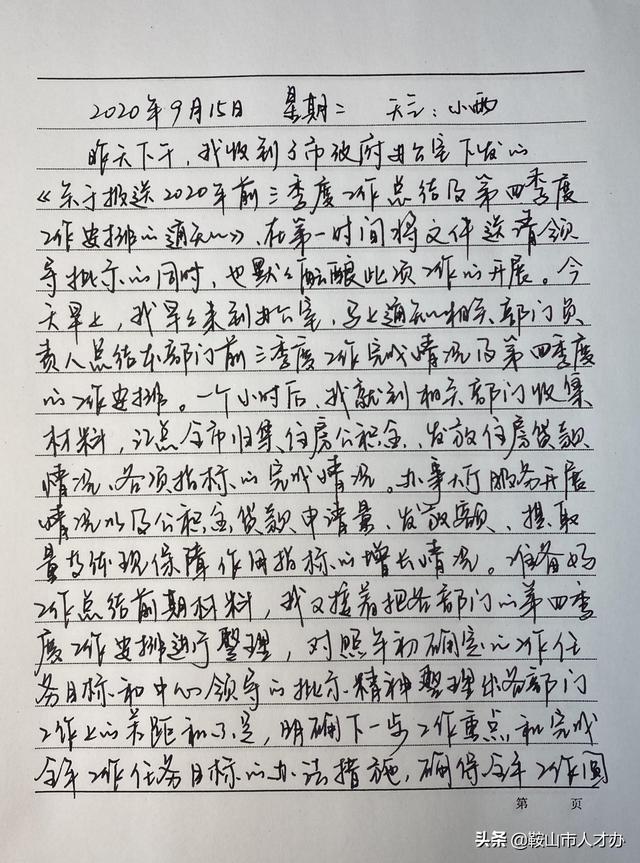 2020年9月15日 星期二 天气:小雨
昨天下午,我收到了市政府办公室下发的
《关于报送2020年前三季度工作总结及第四季度
工作安排的通知》,在第一时间将文件送请领
导批示的同时,也默默酝酿此项工作的开展。今
天早上,我早早来到办公室,马上通知相关部门负
责人总结本部门前三季度工作完成情况及第四季度
的工作安排。一个小时后,我就到相关部门收集
材料,汇总全市归集住房公积金、发放住房贷款
情况、各项指标的完成情况。办事大厅服务开展
情况以及公积金贷款申请量、发放额、提取
量等体现保障作用指标的增长情况。准备好
工作总结前期材料,我又接着把各部门的第四季
度工作安排进行整理,对照年初确定的工作任
务目标和中心领导的批示精神整理出各部门
工作上的差距和不足,明确下一步工作重点和完成
全年工作任务目标的办法措施,确保全年工作圆
第 页
头条@鞍山市人才办